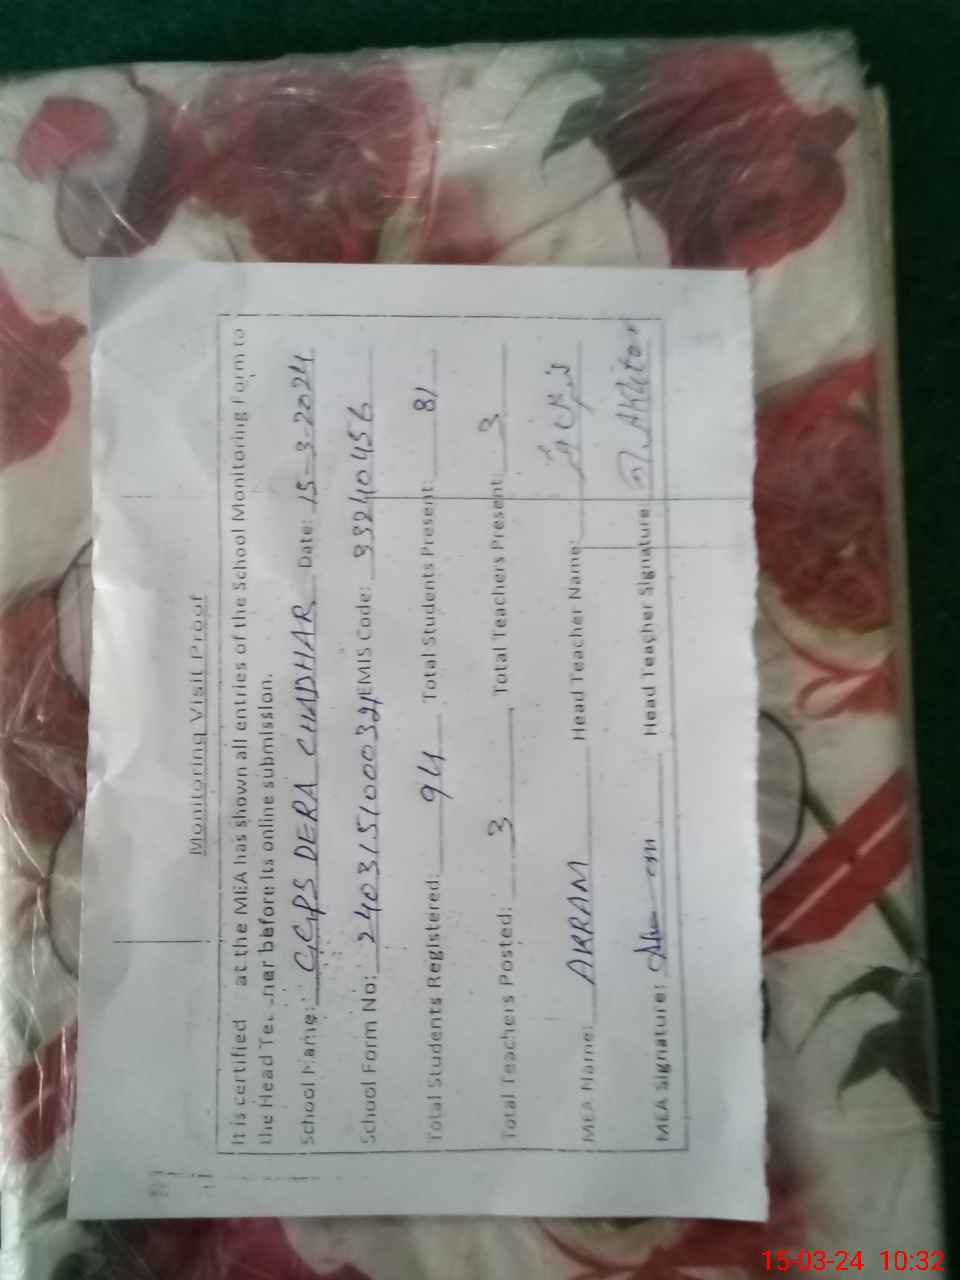 Monitoring Visit Proof
It is certified at the MEA has shown all entries of the School Monitoring Form to
the Head Te ner before its online submission.
School Name: GGPS DERA CHADHAR Date: 15-3-2024
School Form No: EMIS Code:
Total Students Registered: 94 Total Students Present: 81
Total Teachers Posted: 3 Total Teachers Present: 3
MEA Name: AKRAM Head Teacher Name:
MEA Signature: Head Teacher Signature: Akhtar
15-03-24 10:32